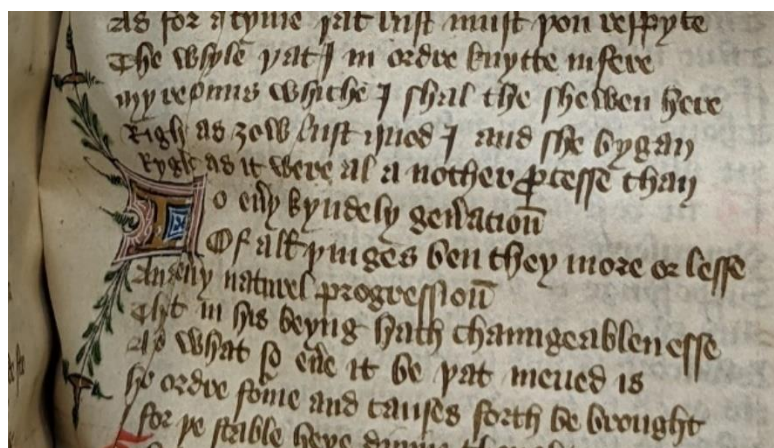 As for a tyme þat lust must you respyte
The whyle þat I in ordre knytte in fere
my resouns whiche I shal the shewen here
Righ as зow lust quod I and she bygan
Ryght as it were al a nother ꝓcesse than
To eũy kyndely geñacioū
Of all þinges ben they more or lesse
And eũy naturel progressioū
That in his beyng hath chaungeablenesse
And what so eũe it be þat meued is
his ordre fo͛me and causes forth be brought
for þe stable heye